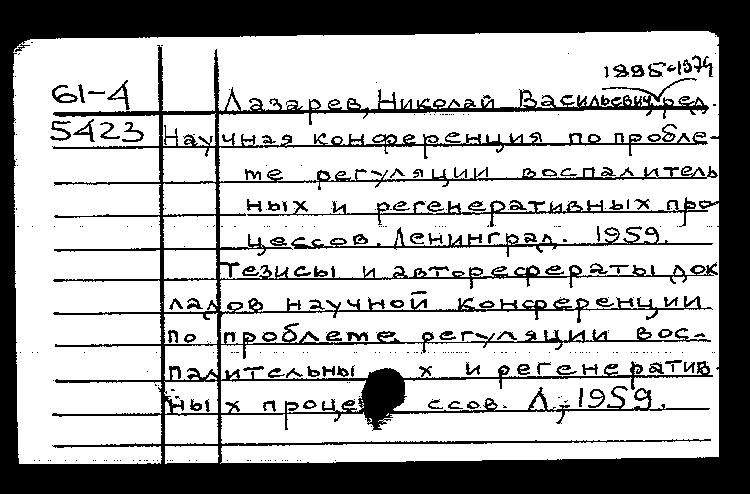 1895-1974
61-4 Лазарев, Николай Васильевич, ред.
5423 Научная конференция по пробле-
ме регуляции воспалитель
ных и регенеративных про-
цессов. Ленинград. 1959.
Тезисы и авторефераты док
ладов научной конференции
по проблеме регуляции вос-
палительны х и регенератив-
ных проце ссов. Л., 1959.